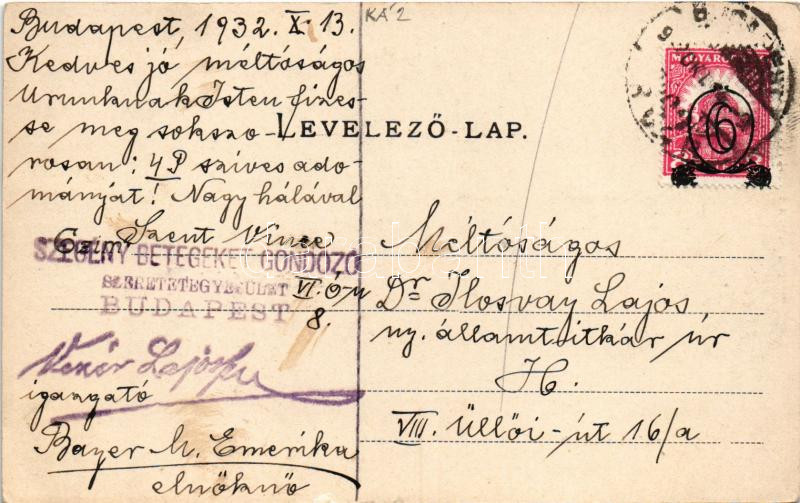 Budapest, 1932. X. 13.
KÁ2
Kedves jó méltóságos
Urunknak Isten fizes-
se meg sokszo-
rosan: 4 P szíves ado-
mányát! Nagy hálával
LEVELEZŐ-LAP.
MAGYAR
6
Szent Vince
SZEGÉNY BETEGEKET GONDOZÓ
SZERETETEGYESÜLET
BUDAPEST
VI.
8.
igazgató
Bayer M. Emerika
elnöknő
Méltóságos
Dr. Ilosvay Lajos
ny. államtitkár úr
H.
VIII. Üllői-út 16/a